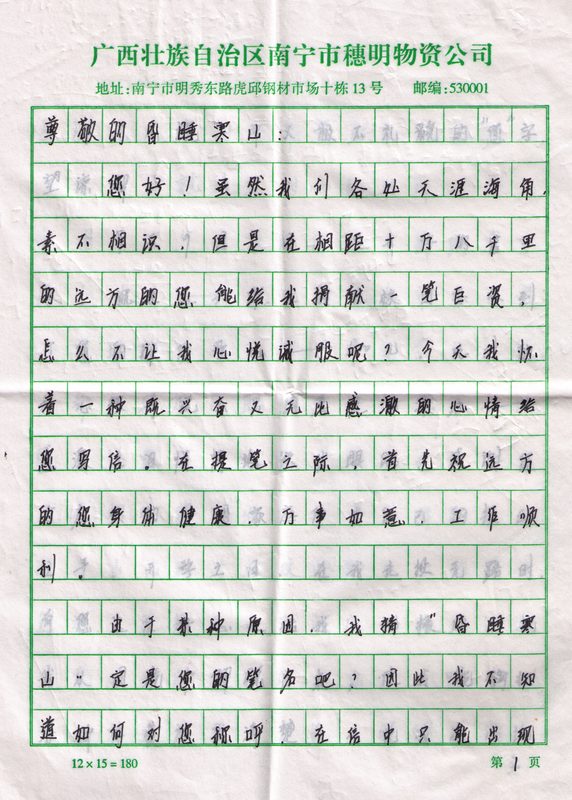 广西壮族自治区南宁市穗明物资公司
地址:南宁市明秀东路虎邱钢材市场十栋13号 邮编:530001
尊敬的昏睡寒山:
您好!虽然我们各处天涯海角,
素不相识,但是在相距十万八千里
的远方的您能给我捐献一笔巨资,
怎么不让我心悦诚服呢?今天我怀
着一种既兴奋又无比感激的心情给
您写信。在提笔之际,首先祝远方
的您身体健康,万事如意,工作顺
利。
由于某种原因,我猜"昏睡寒
山"一定是您的笔名吧?因此我不知
道如何对您称呼,在信中只能出现
12×15=180
第1页